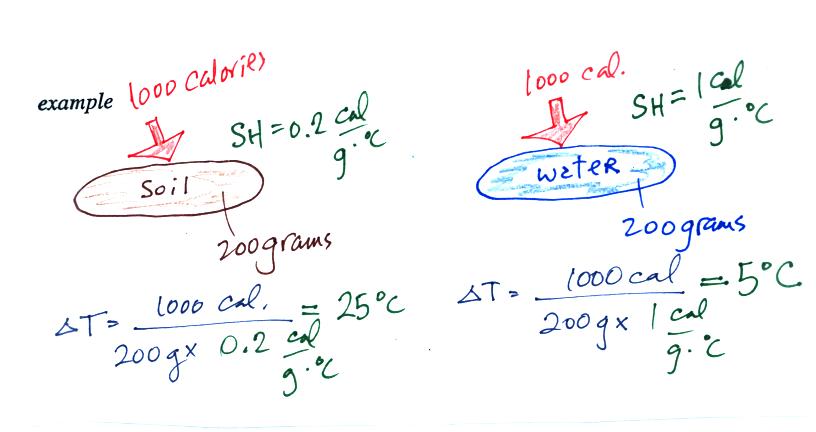 example 1000 calories
SH = 0.2 cal / g · °C
Soil
200 grams
ΔT = 1000 cal. / 200 g x 0.2 cal / g · °C = 25 °C
1000 cal.
SH = 1 cal / g · °C
water
200 grams
ΔT = 1000 cal / 200 g x 1 cal / g · °C = 5 °C